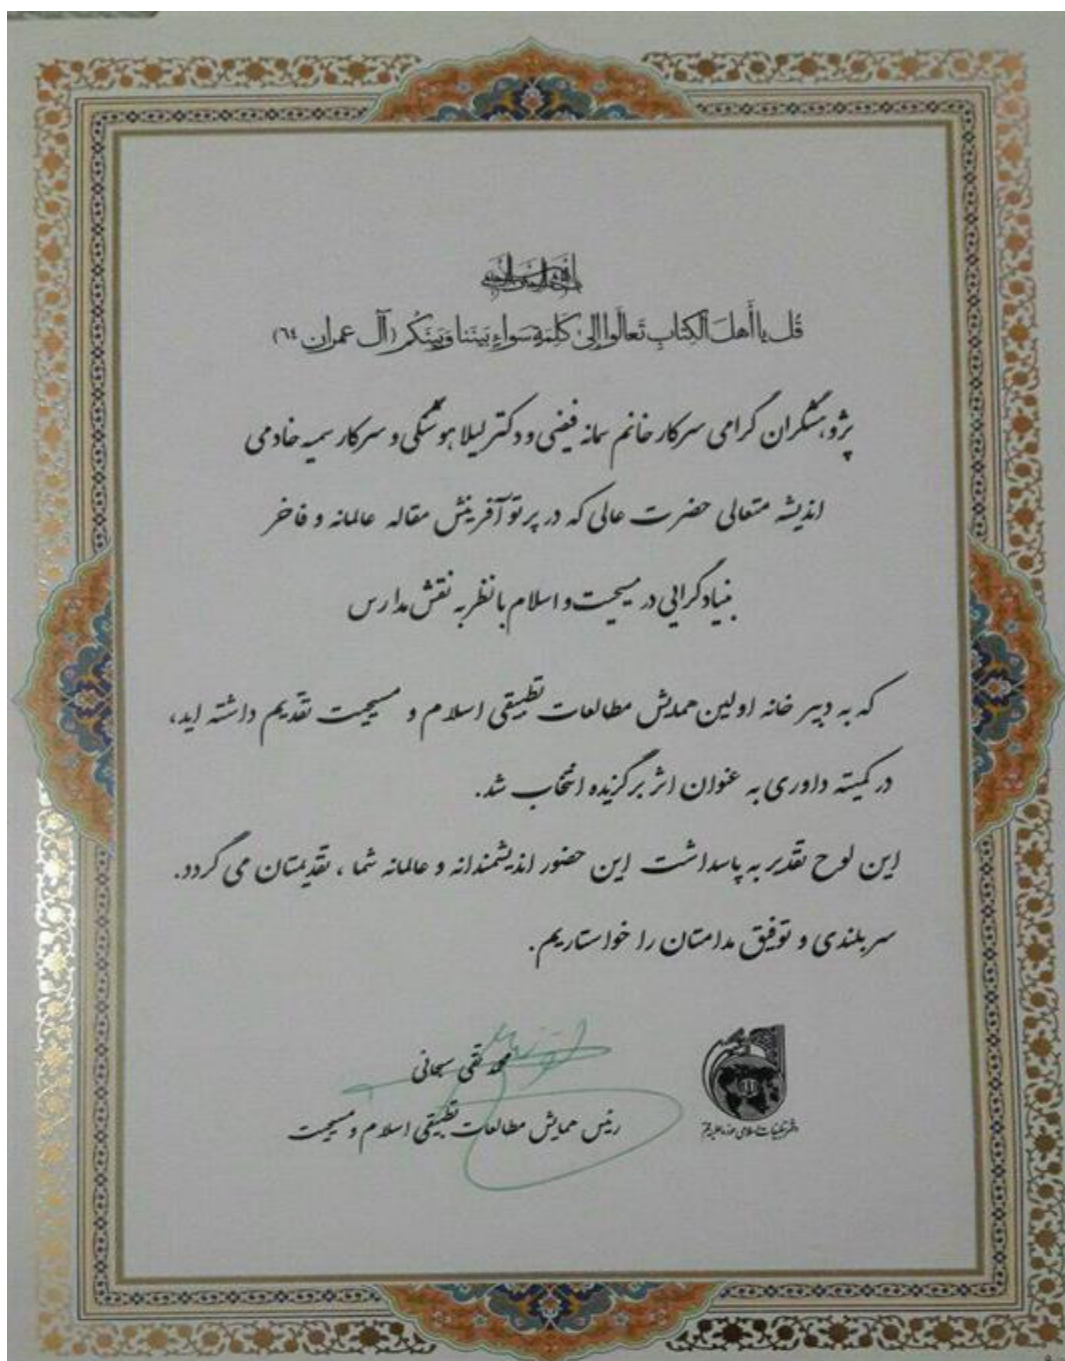 بسم الله الرحمن الرحیم
قُل يا أَهلَ الكِتابِ تَعالَوا إِلىٰ كَلِمَةٍ سَواءٍ بَينَنا وَبَينَكُم (آل عمران ٦٤)
پژوهشگران گرامی سرکار خانم سمانه فیضی و دکتر لیلا هوشنگی و سرکار سمیه خادمی
اندیشه متعالی حضرت عالی که در پرتو آفرینش مقاله عالمانه و فاخر
بنیادگرایی در مسیحیت و اسلام با نظر به نقش مدارس
که به دبیر خانه اولین همایش مطالعات تطبیقی اسلام و مسیحیت تقدیم داشته اید،
در کمیته داوری به عنوان اثر برگزیده انتخاب شد.
این لوح تقدیر به پاسداشت این حضور اندیشمندانه و عالمانه شما ، تقدیمتان می گردد.
سر بلندی و توفیق مدامتان را خواستاریم.
محمد تقی سبحانی
رئیس همایش مطالعات تطبیقی اسلام و مسیحیت
دفتر تبلیغات اسلامی حوزه علمیه قم